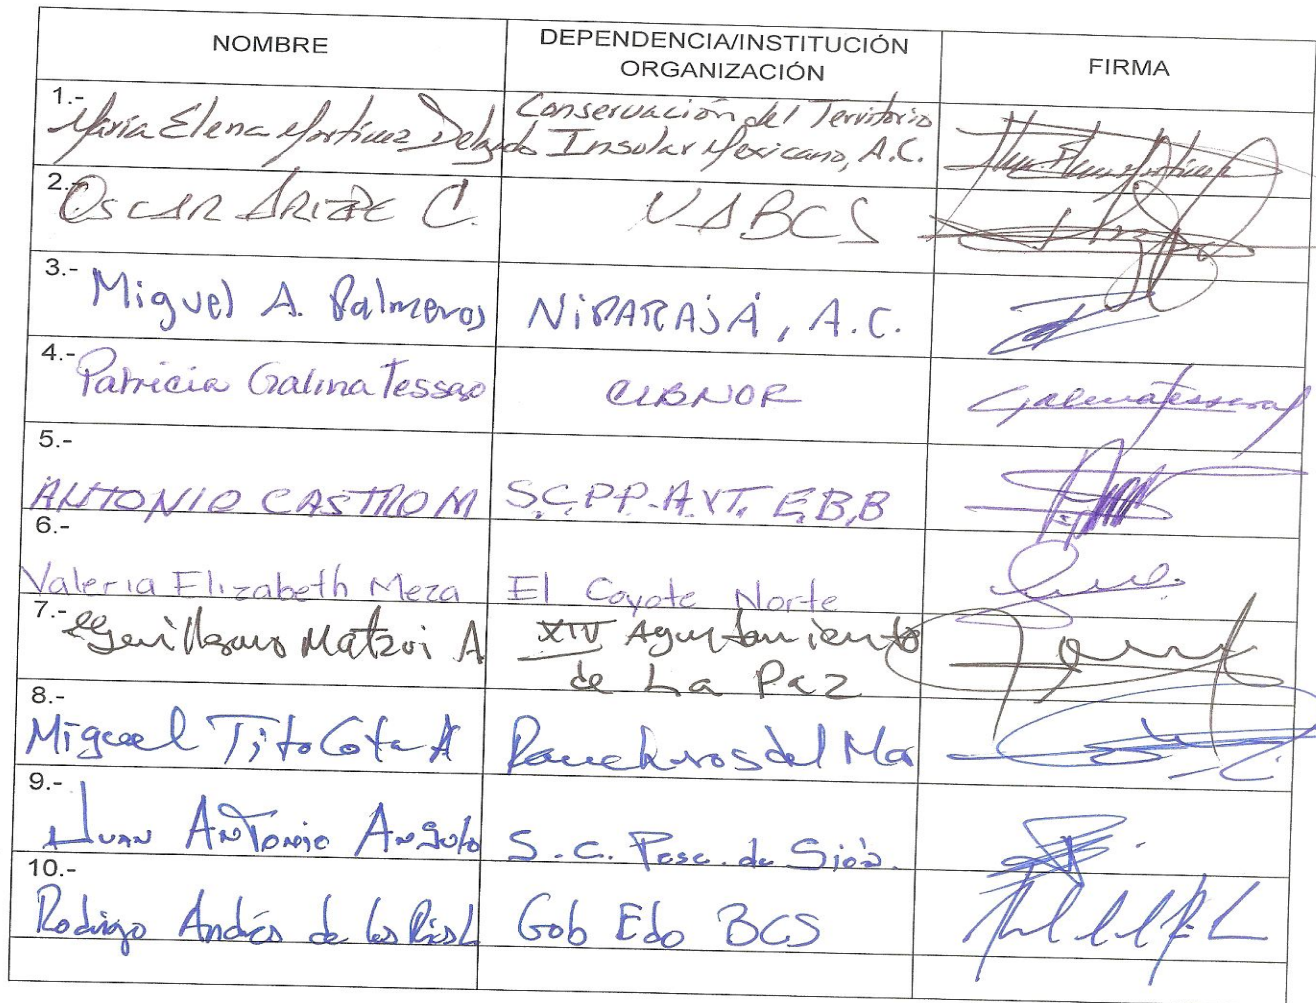 NOMBRE
DEPENDENCIA/INSTITUCIÓN
ORGANIZACIÓN
FIRMA
1.-
María Elena Martínez Delgado
Conservación del Territorio
Insular Mexicano, A.C.
2.-
OSCAR ARIZPE C.
UABCS
3.-
Miguel A. Palmeros
NIPARAJÁ, A.C.
4.-
Patricia Galina Tessaro
CIBNOR
Galinatessaro
5.-
ANTONIO CASTRO M
S.C.P.P.A.YT. E.B.B
6.-
Valeria Elizabeth Meza
El Coyote Norte
7.-
Guillermo A
XIV Ayuntamiento
de La Paz
8.-
Miguel Tito Cota A
Rancheros del Mar
9.-
Juan Antonio Angulo
S.C. Pesc. de
10.-
Rodrigo Andrés de los Ríos L
Gob Edo BCS